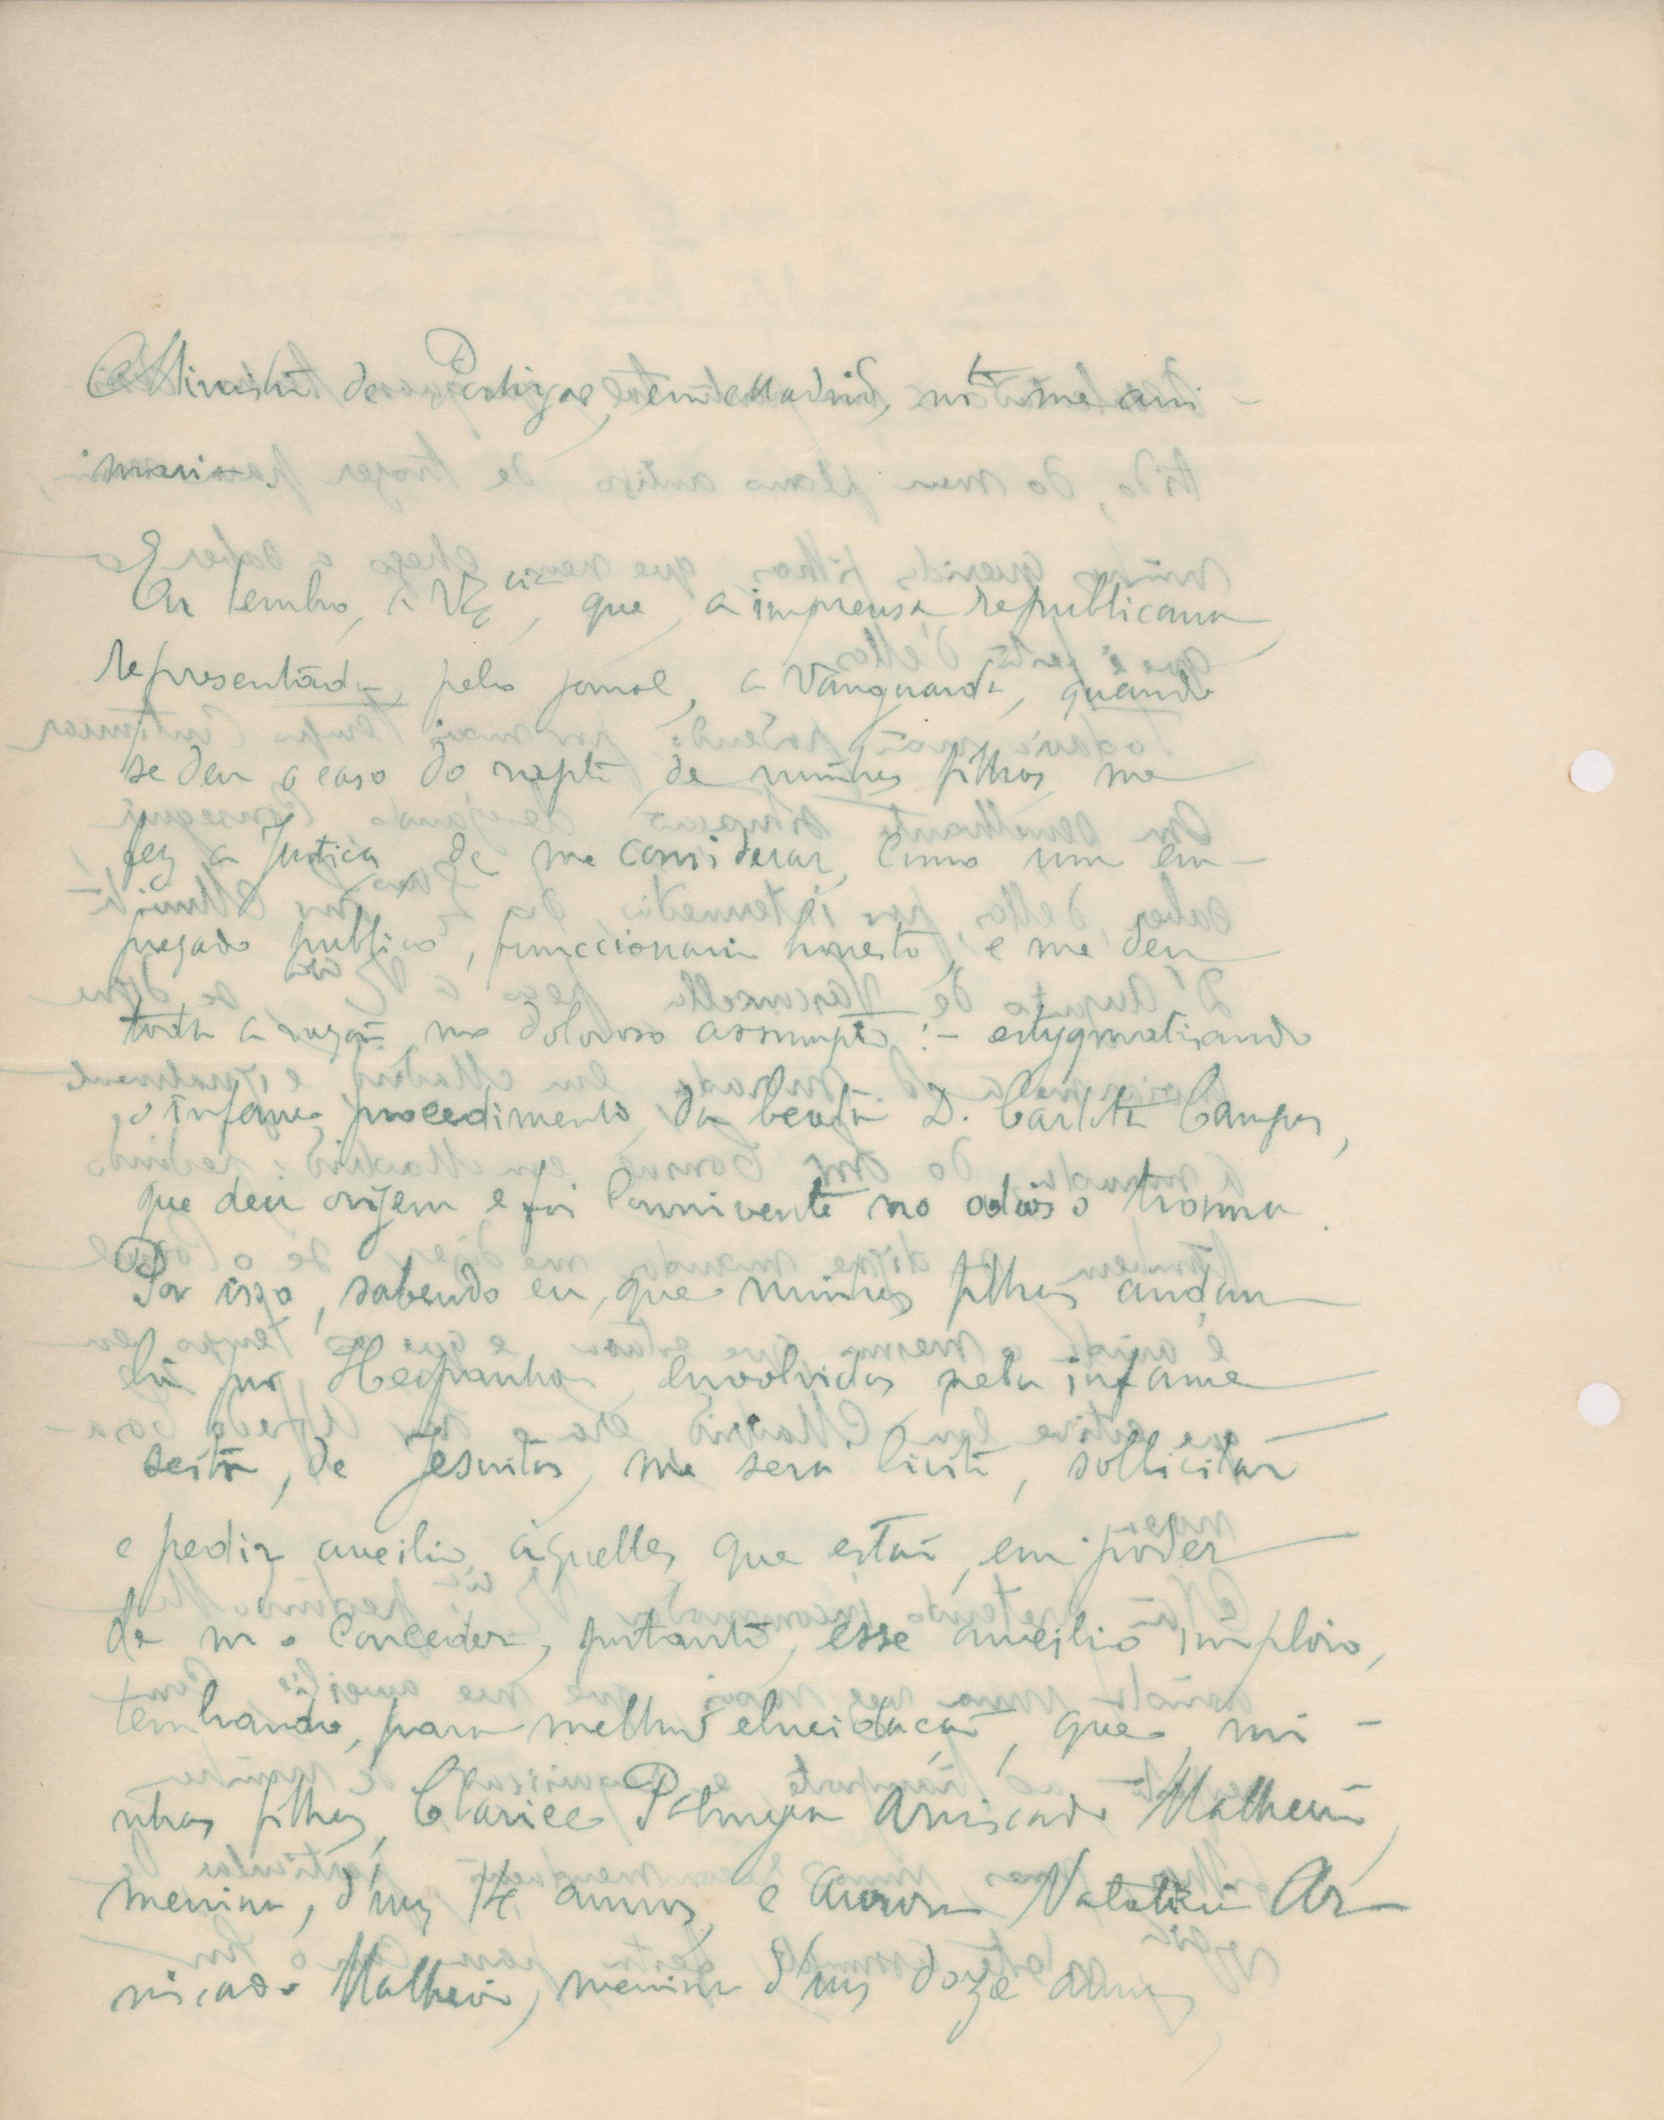 Ministro de Portugal, em Madrid, me ani-
maria.
Eu lembro, a V. Ex.cia, que, a imprensa republicana
representada, pelo jornal, a Vanguarda, quando
se deu o caso do rapto, de minhas filhas, me
fez a justiça, de me considerar, como um em-
pregado publico, funccionario honesto, e me deu
toda a razão no doloroso assumpto: - estygmatisando
o infame procedimento, da beata D. Carlota Campos,
que deu origem e foi connivente no odioso trama.
Por isso, sabendo eu, que minhas filhas andam
lá por Hespanha, envolvidas pela infame
seita, de Jesuitas, me sera licito, sollicitar
e pedir aucilio áquelles que estão, em poder
de m'o conceder, portanto, esse aucilio imploro,
lembrando, para melhor elucidação, que, mi-
nhas filhas, Clarice Palmyra Arniscado Matheus,
menina, d'uns 14 annos, e Aurora Natalia Ar-
niscado Matheus, menina d'uns doze annos,